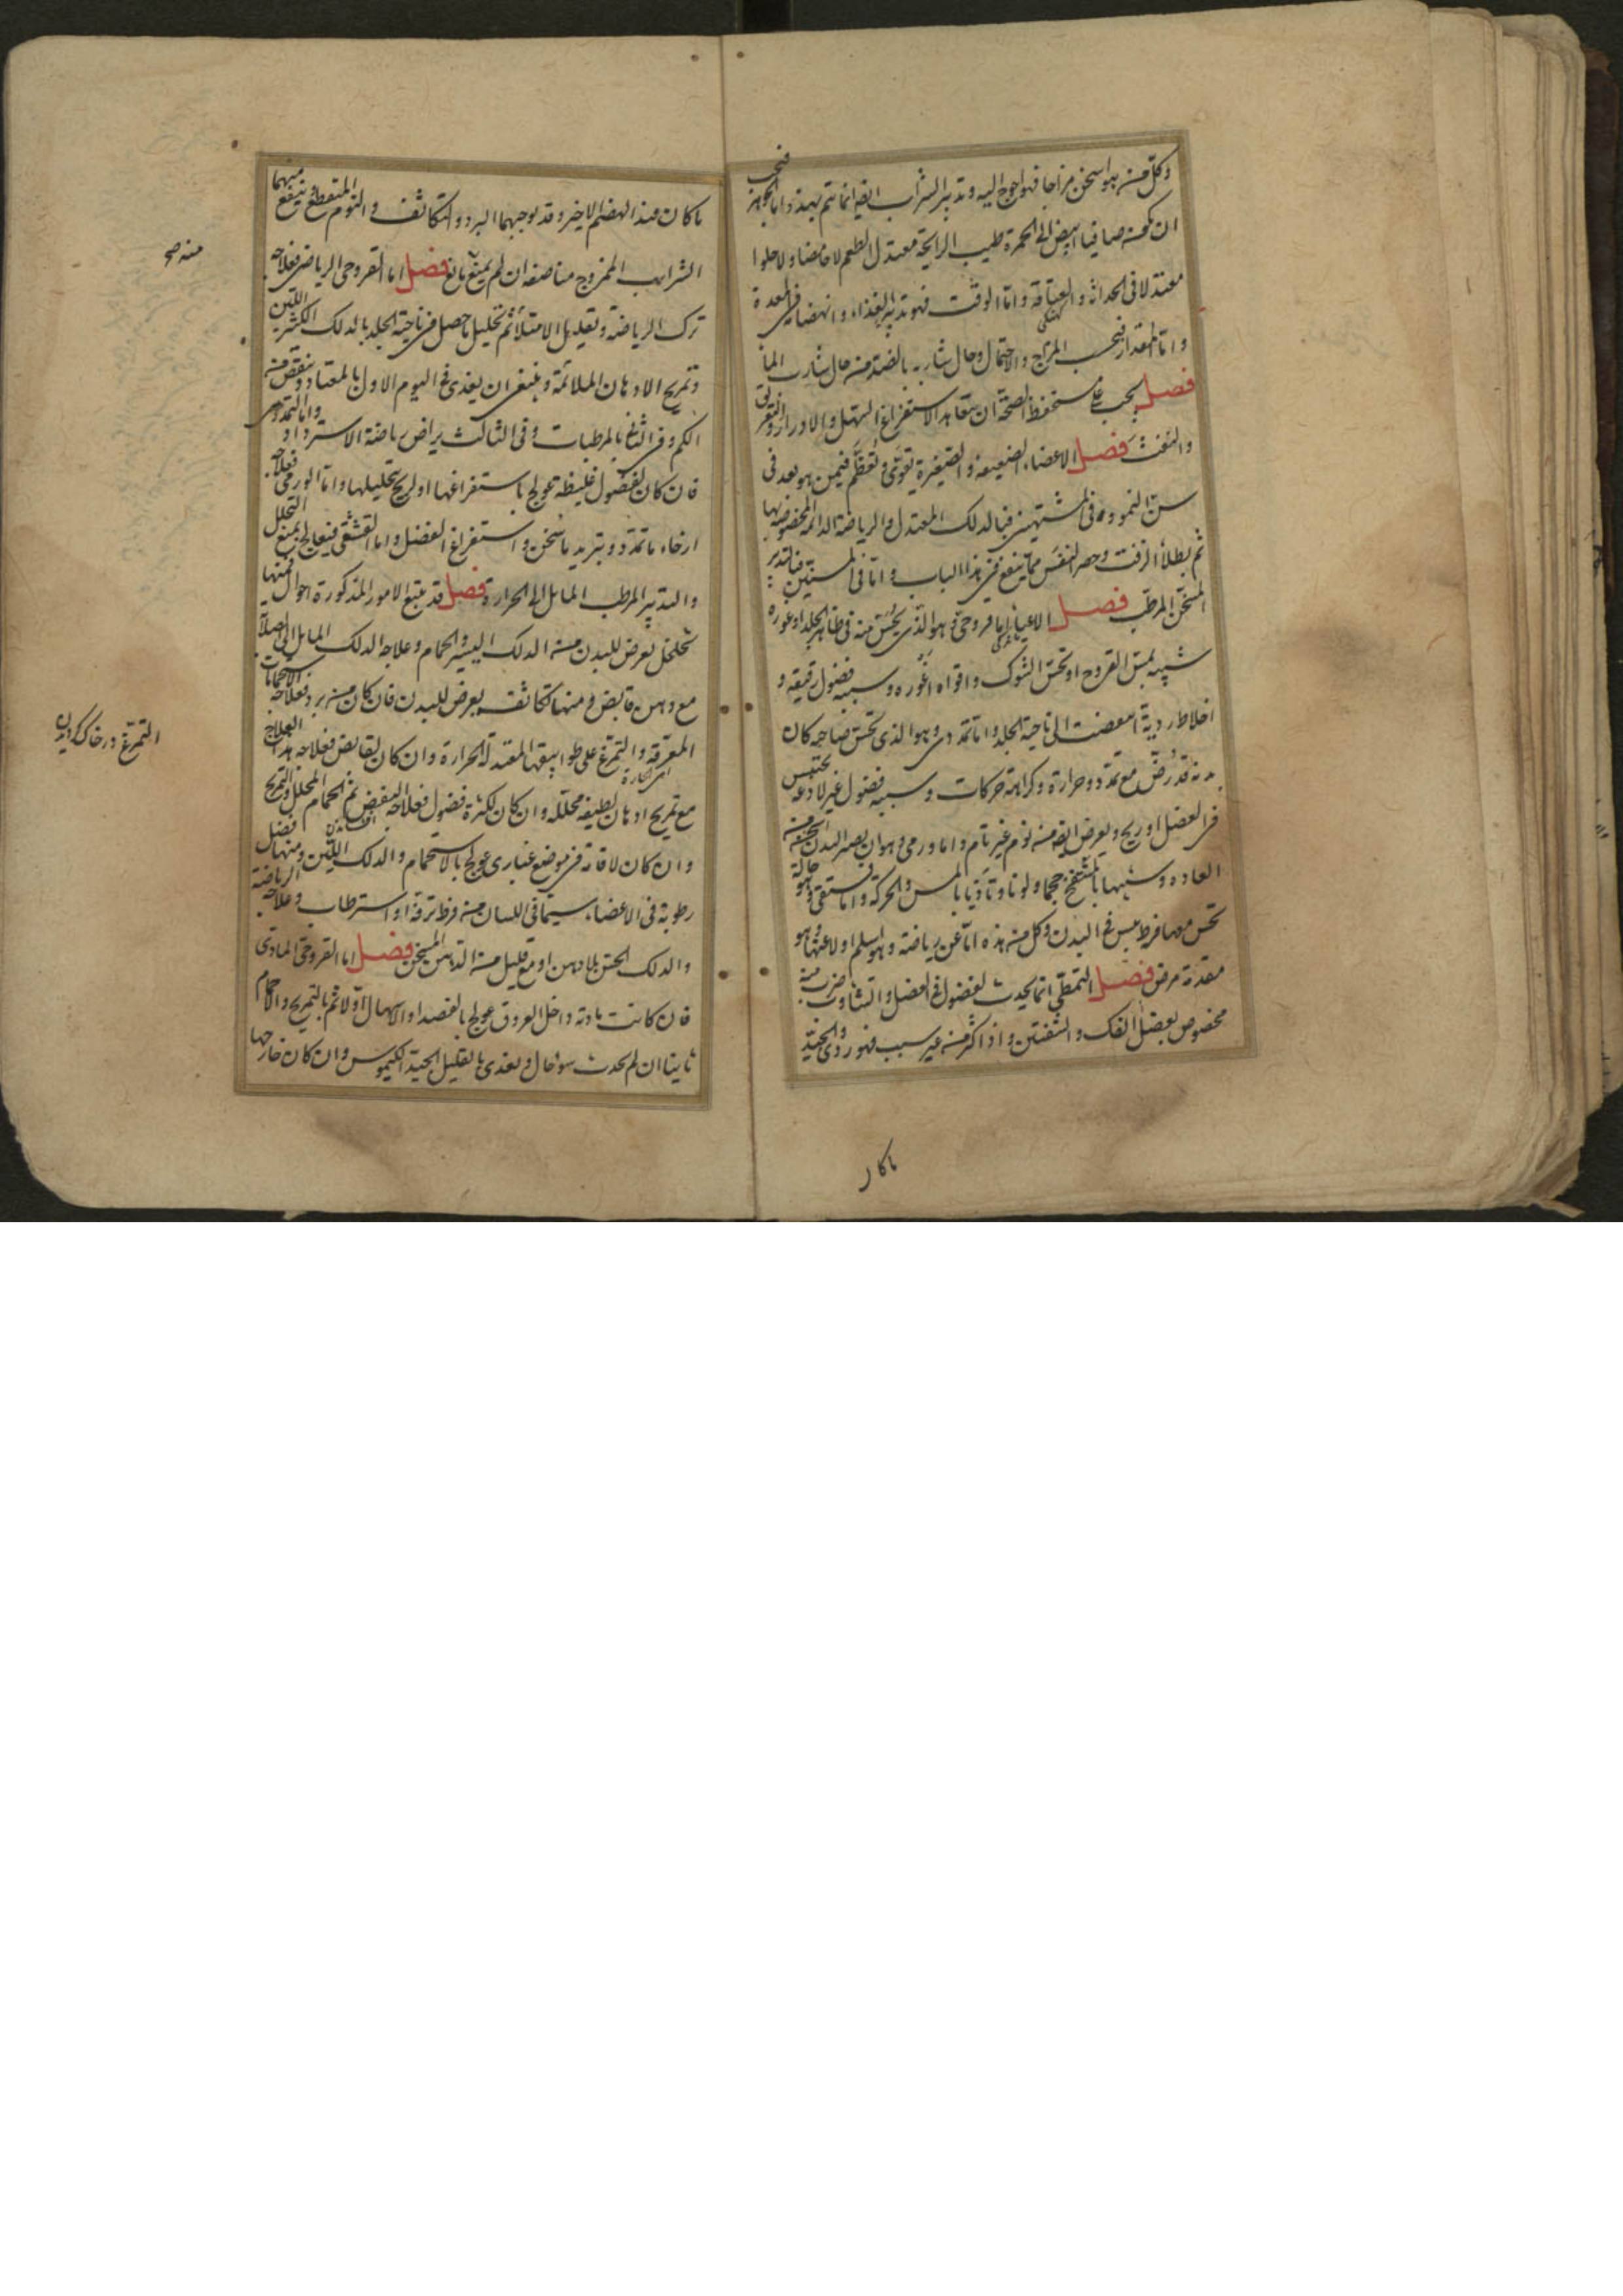 وكل من هو اسخن مزاجا فهو احوج اليه وتدبير الشراب ايضا انما يتم بهذه اما الجوهر فيجب
ان يكون صافيا ابيض الى الحمرة طيب الرايحة معتدل الطعم لا حامضا ولا حلوا
معتدلا فى الحداثة والعتاقة واما الوقت فهو تدبير الغذاء وانهضامه فى المعدة
واما المقدار فبحسب المزاج والاحتمال وحال شاربه بالضد من حال شارب الماء
فصل يجب على مستحفظ الصحة ان يتعاهد الاستفراغ بالاسهال والادرار والتعريق
والنفث فصل الاعضاء الضعيفة والصغيرة تقوى وتعظم فيمن هو بعد فى
سن النمو وفى المشتهين فبالدلك المعتدل والرياضة الدائمة المخصوصة بها
ثم بطلاء الزفت وحصر النفس مما ينفع فى هذا الباب واما فى المسنين فبالتدبير
المسخن المرطب فصل الاعياء اما قروحى وهو الذى يحس منه فى ظاهر الجلد او غوره
شبيه بمس القروح او نخس الشوك واقواه اغوره وسببه فضول رقيقة و
اخلاط ردية انفضت الى ناحية الجلد واما تمددى وهو الذى يحس صاحبه كان
بدنه قد رض مع تمدد وحرارة وكراهة حركات وسببه فضول غير لاذعة تحتبس
فى العضل او ريح ويعرض ايضا من نوم غير تام واما ورمى وهو ان يصير البدن اسخن من
العادة وشبيها بالمنتفخ حجما ولونا وتأذيا بالمس والحركة واما قشفى وهو حالة
يحس معها فرط يبس فى البدن وكل من هذه اما عن رياضة وهو اسلم او لا عنها وهو
مقدمة مرض فصل التمطى انما يحدث لفضول فى العضل والتثاوب ضرب منه
مخصوص بعضل الفك والشفتين واذا كثر من غير سبب فهو ردى والجيد
ما كان
ما كان عند الهضم الاخير وقد يوجبهما البرد والتكاثف والنوم المتقطع وينفع منهما
الشراب الممزوج مناصفة ان لم يمنع مانع فصل اما القروحى الرياضى فعلاجه
منه صح
ترك الرياضة وتعديل الامتلاء ثم تحليل ما حصل فى ناحية الجلد بالدلك الكثير اللين
وتمريخ الادهان الملائمة وينبغى ان يغذى فى اليوم الاول بالمعتاد وينقص منه
الكم وفى الثانى بالمرطبات وفى الثالث يراض رياضة الاسترداد واما التمددى
فان كان لفضول غليظة عولج باستفراغها او لريح بتحليلها واما الورمى فعلاجه
ارخاء ما تمدد وتبريد ما سخن واستفراغ الفضل واما القشفى فيعالج بمنع التحلل
والتدبير المرطب المائل الى الحرارة فصل قد يتبع الامور المذكورة احوال فمنها
تخلخل يعرض للبدن من الدلك اليسير والحمام وعلاجه الدلك المائل الى الصلابة
مع دهن قابض ومنها تكاثف يعرض للبدن فان كان من برد فعلاجه الاستحمامات
المعرقة والتمرغ على طوابيقها المعتدلة الحرارة وان كان لقابض فعلاجه هذا العلاج
التمرغ در خاك كرديدن
مع تمريخ ادهان لطيفة محللة وان كان لكثرة فضول فعلاجه النفض ثم الحمام المحلل والتمريخ
وان كان لاقامة فى موضع غبارى عولج بالاستحمام والدلك اللين ومنها فضل
رطوبة فى الاعضاء سيما فى اللسان من فرط ترفه او استرطاب وعلاجه الرياضة
والدلك الخشن بلا دهن او مع قليل من الدهن المسخن فصل اما القروحى المادى
فان كانت مادته داخل العروق عولج بالفصد او الاسهال اولا ثم بالتمريخ والاحمام
ثانيا ان لم يحدث سوء حال ويغذى بالقليل الجيد الكيموس وان كان خارجها